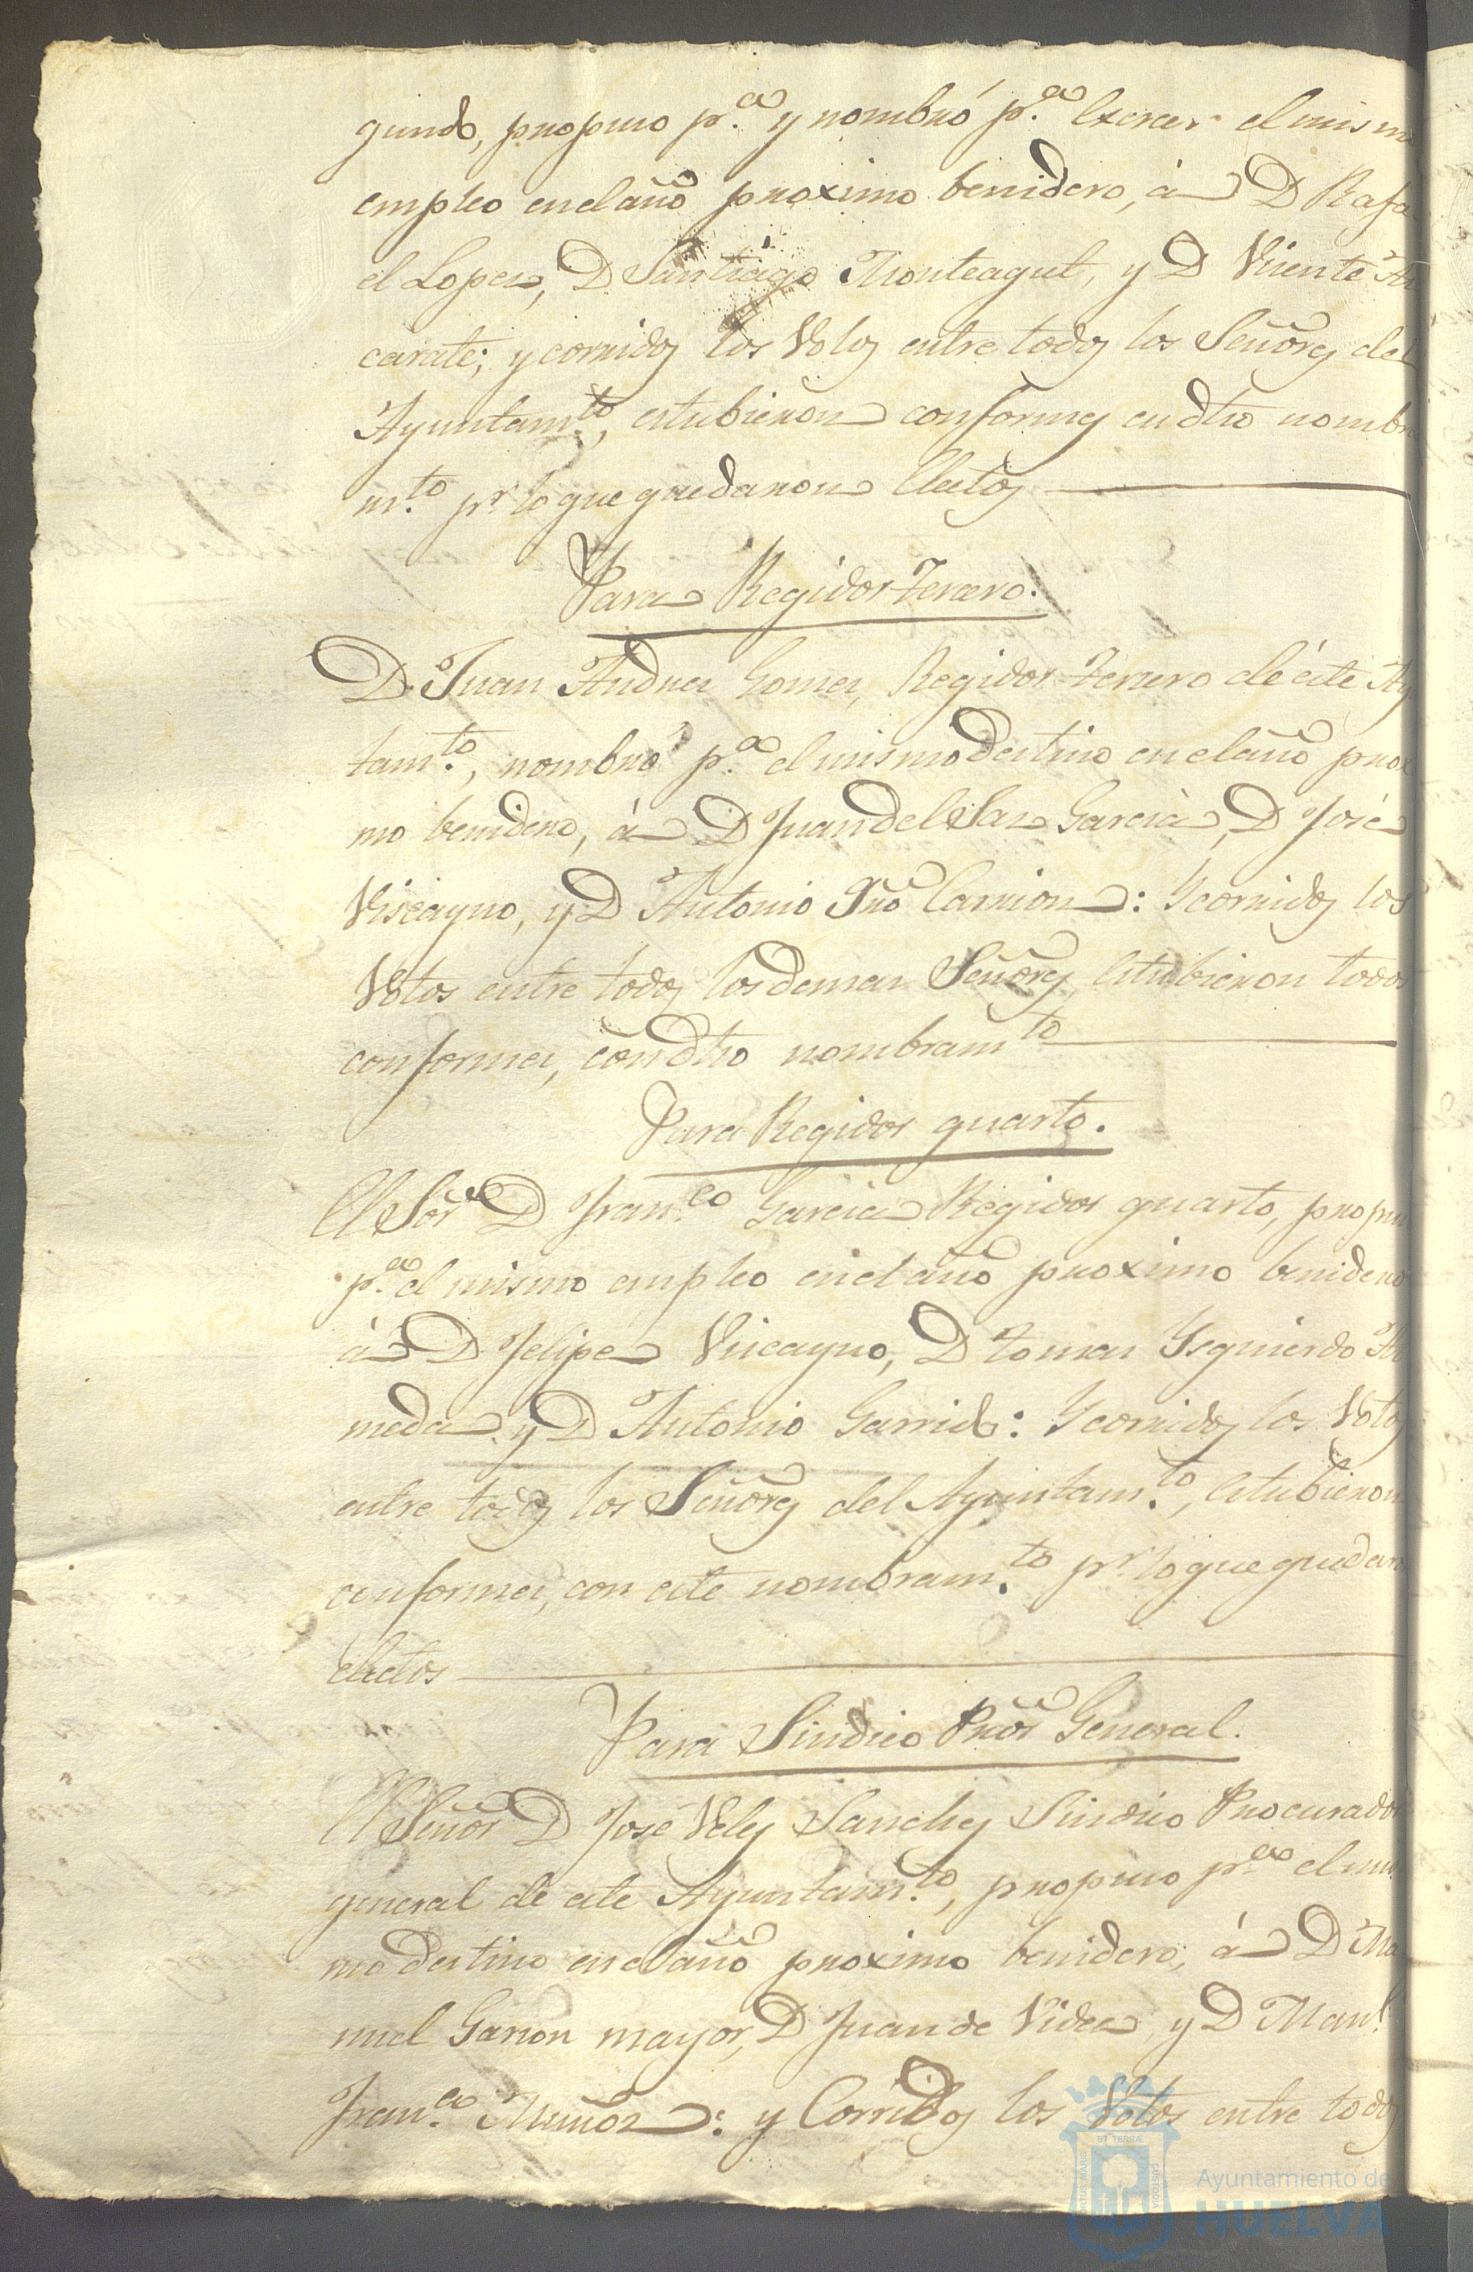 gundo, propuso p.ª y nombró p.ª Exercer el mismo
empleo en el año proximo benidero, á D Rafa
el Lopez, D Santiago Monteagut, y D Vicente
carate; y corridos los Votos entre todos los Señores del
Ayuntam.to, estubieron conformes en dho nombra
m.to pr lo que quedaron Electos
Para Regidor Tercero.
D. Juan Andres Gomez, Regidor Tercero de éste Ay
tam.to, nombró p.ª el mismo destino en el año proxi
mo benidero, á D Juan del Saz Garcia, D José
Viscayno, y D Antonio Jno Carrion: Y corridos los
Votos entre todos los demas Señores, Estubieron todos
conformes, con dho nombram.to
Para Regidor quarto.
El Sor D Fran.co Garcia Regidor quarto, propu
p.ª el mismo empleo en el año proximo benidero
á D Felipe Viscayno, D tomas Ysquierdo
meda y D Antonio Garrido: Y corridos los Votos
entre todos los Señores del Ayuntam.to, Estubieron
conformes, con este nombram.to pr lo que quedaron
electos
Para Sindico Pror General.
El Señor D José Velez Sanchez Sindico Procurador
general de este Ayuntam.to, propuso p.ª el mis
mo destino en el año proximo benidero, á D Ma
nuel Garzon mayor, D Juan de Vides y D Manl.
Fran.co Muñoz: y Corridos los Votos entre todos
PORTUS MARIS ET TERRÆ CUSTODIA
Ayuntamiento de
HUELVA